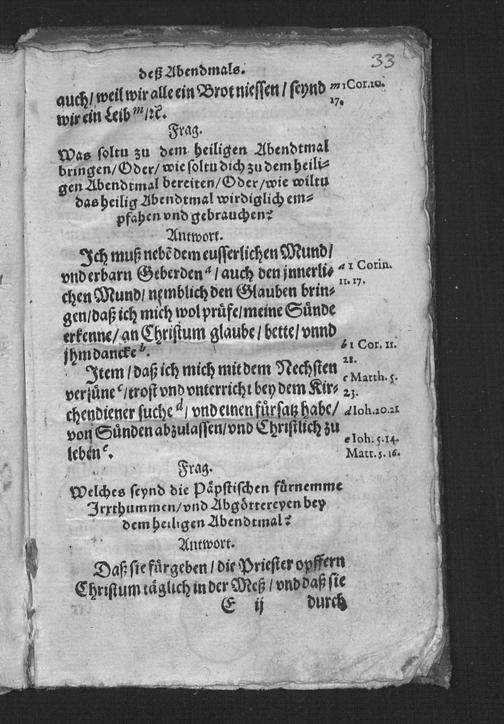 33
deß Abendmals.
auch/ weil wir alle ein Brot niessen/ seynd
wir ein Leib m/ ꝛc.
m 1 Cor. 10.
17.
Frag.
Was soltu zu dem heiligen Abendtmal
bringen/ Oder/ wie soltu dich zu dem heili-
gen Abendtmal bereiten/ Oder/ wie wiltu
das heilig Abendtmal wirdiglich em-
pfahen vnd gebrauchen?
Antwort.
Ich muß nebẽ dem eusserlichen Mund/
vnd erbarn Geberden a/ auch den jnnerli-
chen Mund/ nemblich den Glauben brin-
gen/ daß ich mich wol prüfe/ meine Sünde
erkenne/ an Christum glaube/ bette/ vnnd
jhm dancke b.
a 1 Corin.
11. 17.
b 1 Cor. 11.
28.
Item/ daß ich mich mit dem Nechsten
versüne c/ trost vnd vnterricht bey dem Kir-
chendiener suche d/ vnd einen fürsatz habe/
von Sünden abzulassen/ vnd Christlich zu
leben e.
c Matth. 5.
23.
d Ioh. 20. 21
e Ioh. 5. 14.
Matt. 5. 16.
Frag.
Welches seynd die Päpstischen fürnemme
Irrthummen/ vnd Abgöttereyen bey
dem heiligen Abendtmal?
Antwort.
Daß sie fürgeben/ die Priester opffern
Christum täglich in der Meß/ vnd daß sie
E ij
durch